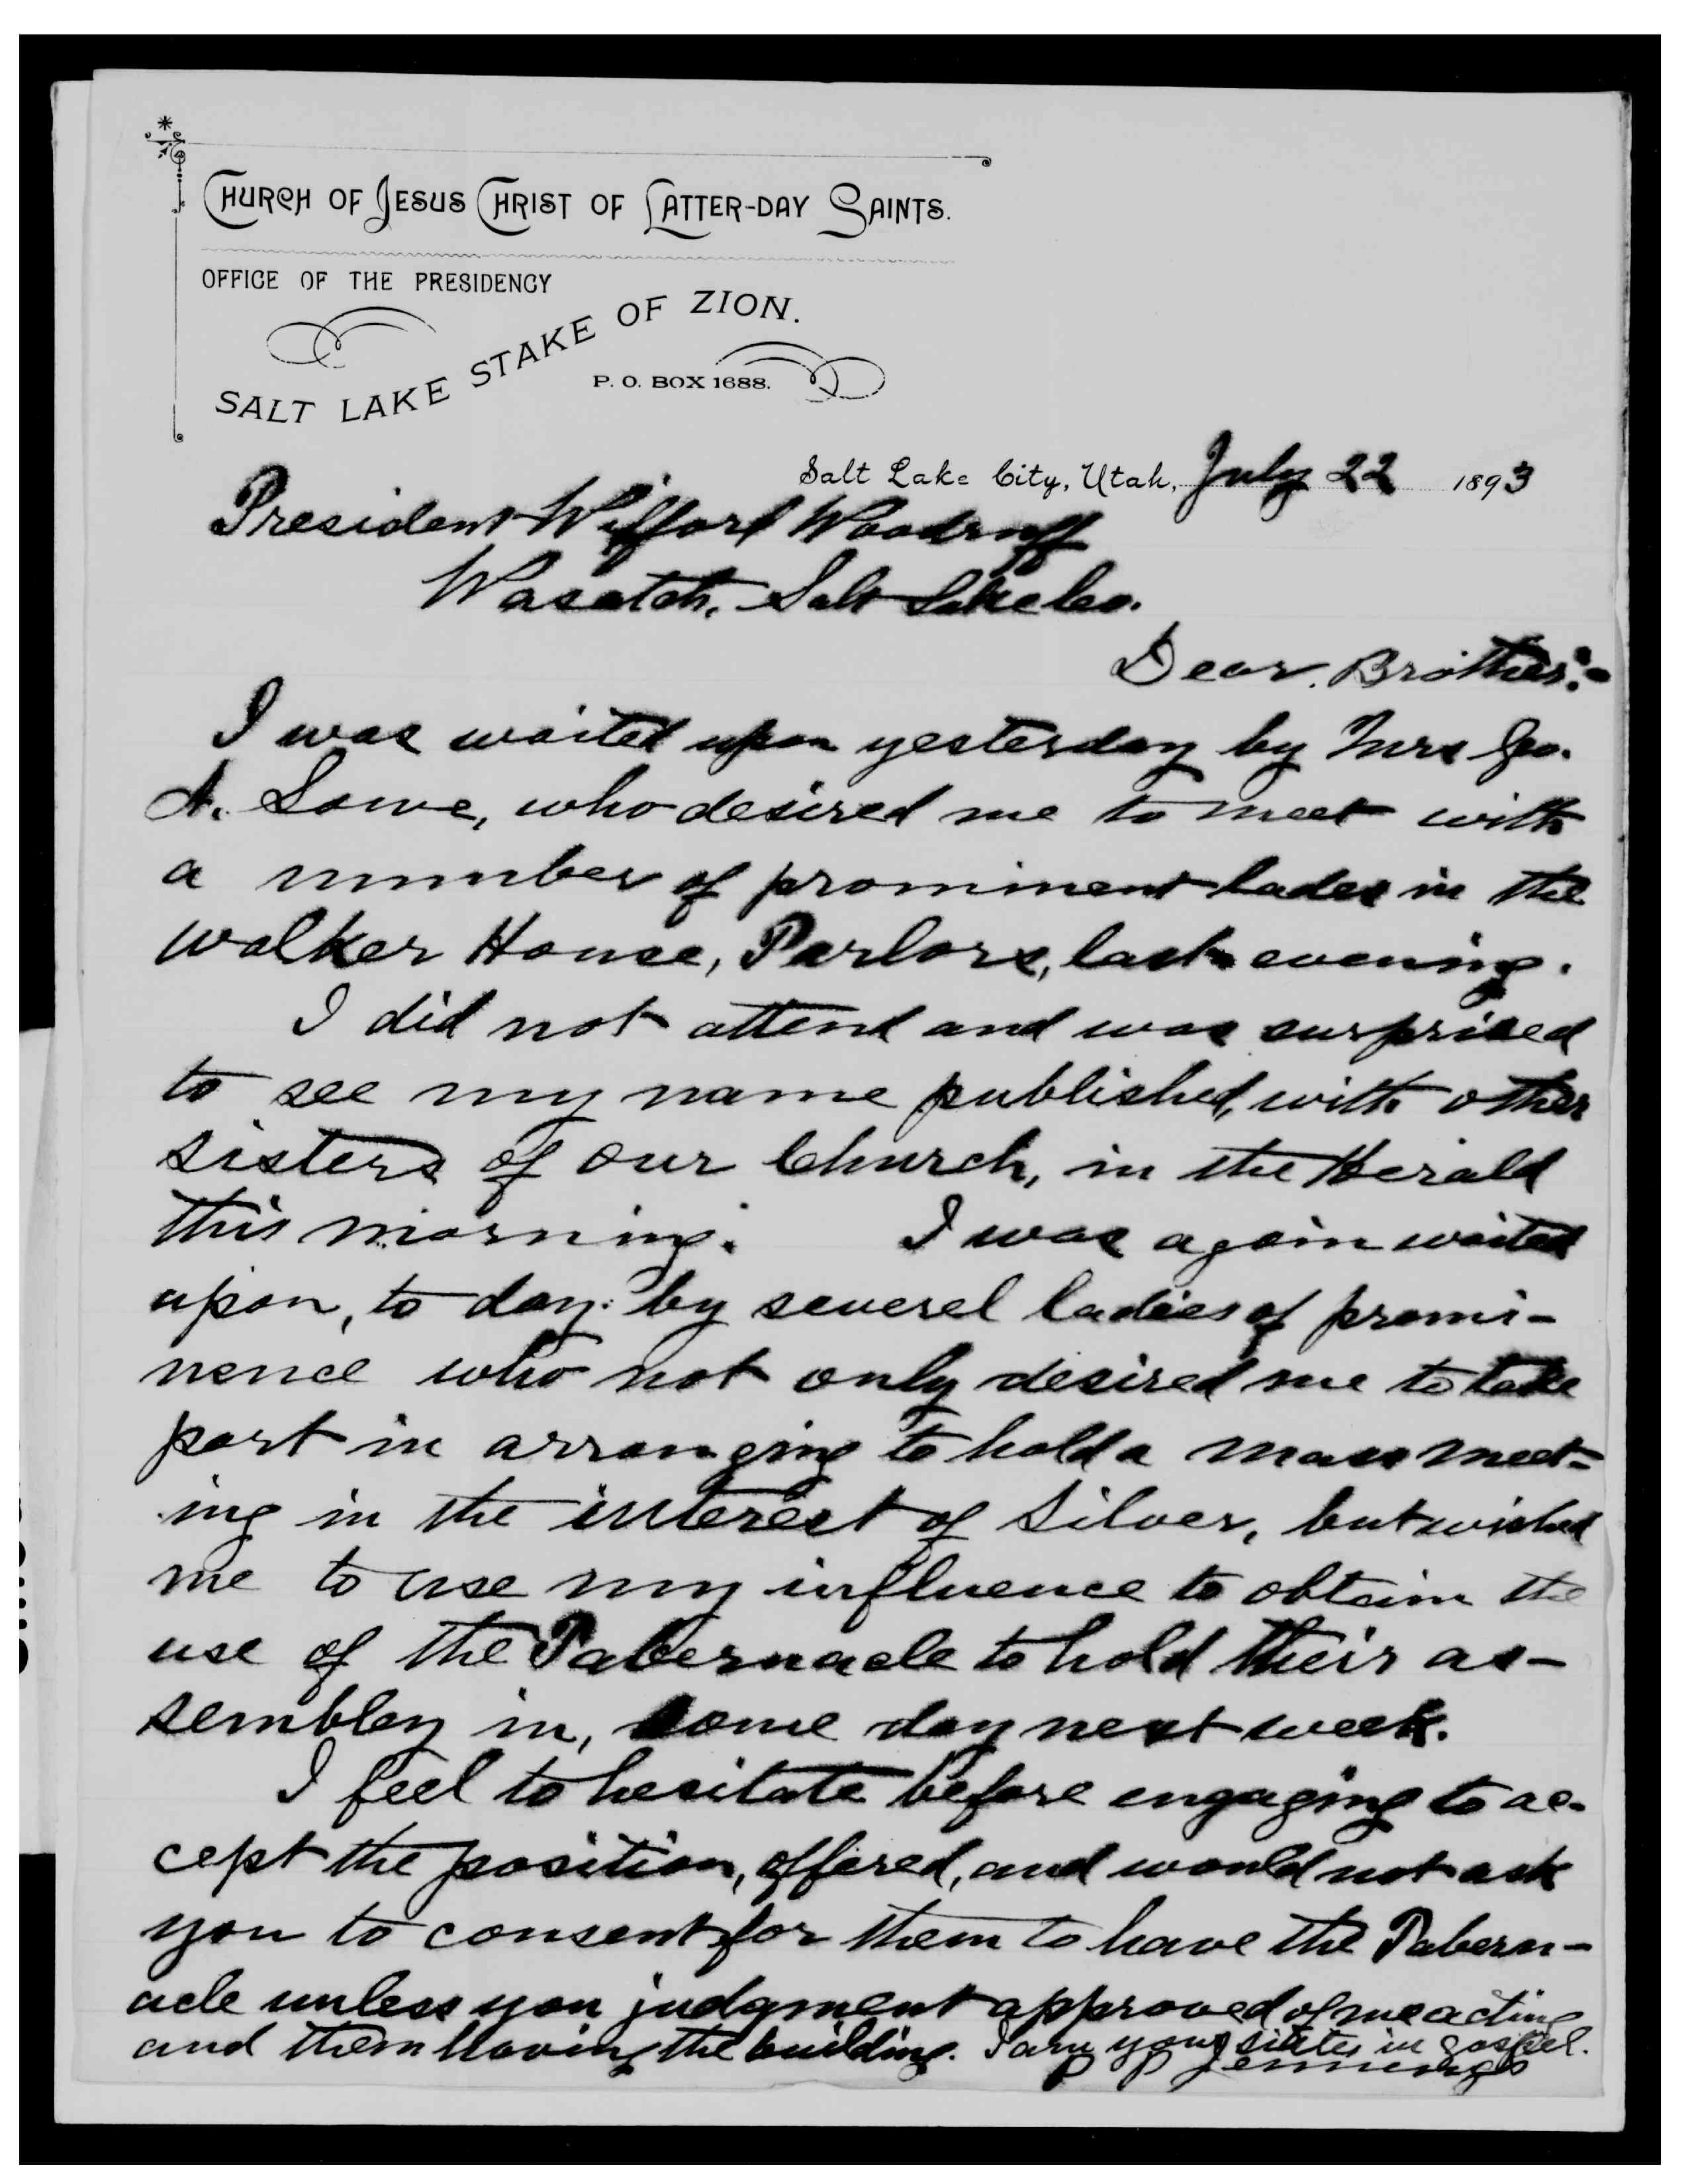 CHURCH OF JESUS CHRIST OF LATTER-DAY SAINTS.
OFFICE OF THE PRESIDENCY
SALT LAKE STAKE OF ZION.
P. O. BOX 1688.
Salt Lake City, Utah, July 22 1893
President Wilford Woodruff
Wasatch, Salt Lake Co.
Dear Brother:-
I was waited upon yesterday by Mrs Geo.
A. Lowe, who desired me to meet with
a number of prominent lades in the
Walker House, Parlors, last evening.
I did not attend and was surprised
to see my name published, with other
sisters of our Church, in the Herald
this morning. I was again waited
upon, to day. by severel ladies of promi-
nence who not only desired me to take
part in arranging to hold a mass meet-
ing in the interest of Silver, but wished
me to use my influence to obtain the
use of the Tabernacle to hold their as-
sembley in, some day next week.
I feel to hesitate before engaging to ac-
cept the position, offered, and would not ask
you to consent for them to have the Tabern-
acle unless you judgment approved of me acting
and them having the building. I am your sister in gospel.
P P Jennings